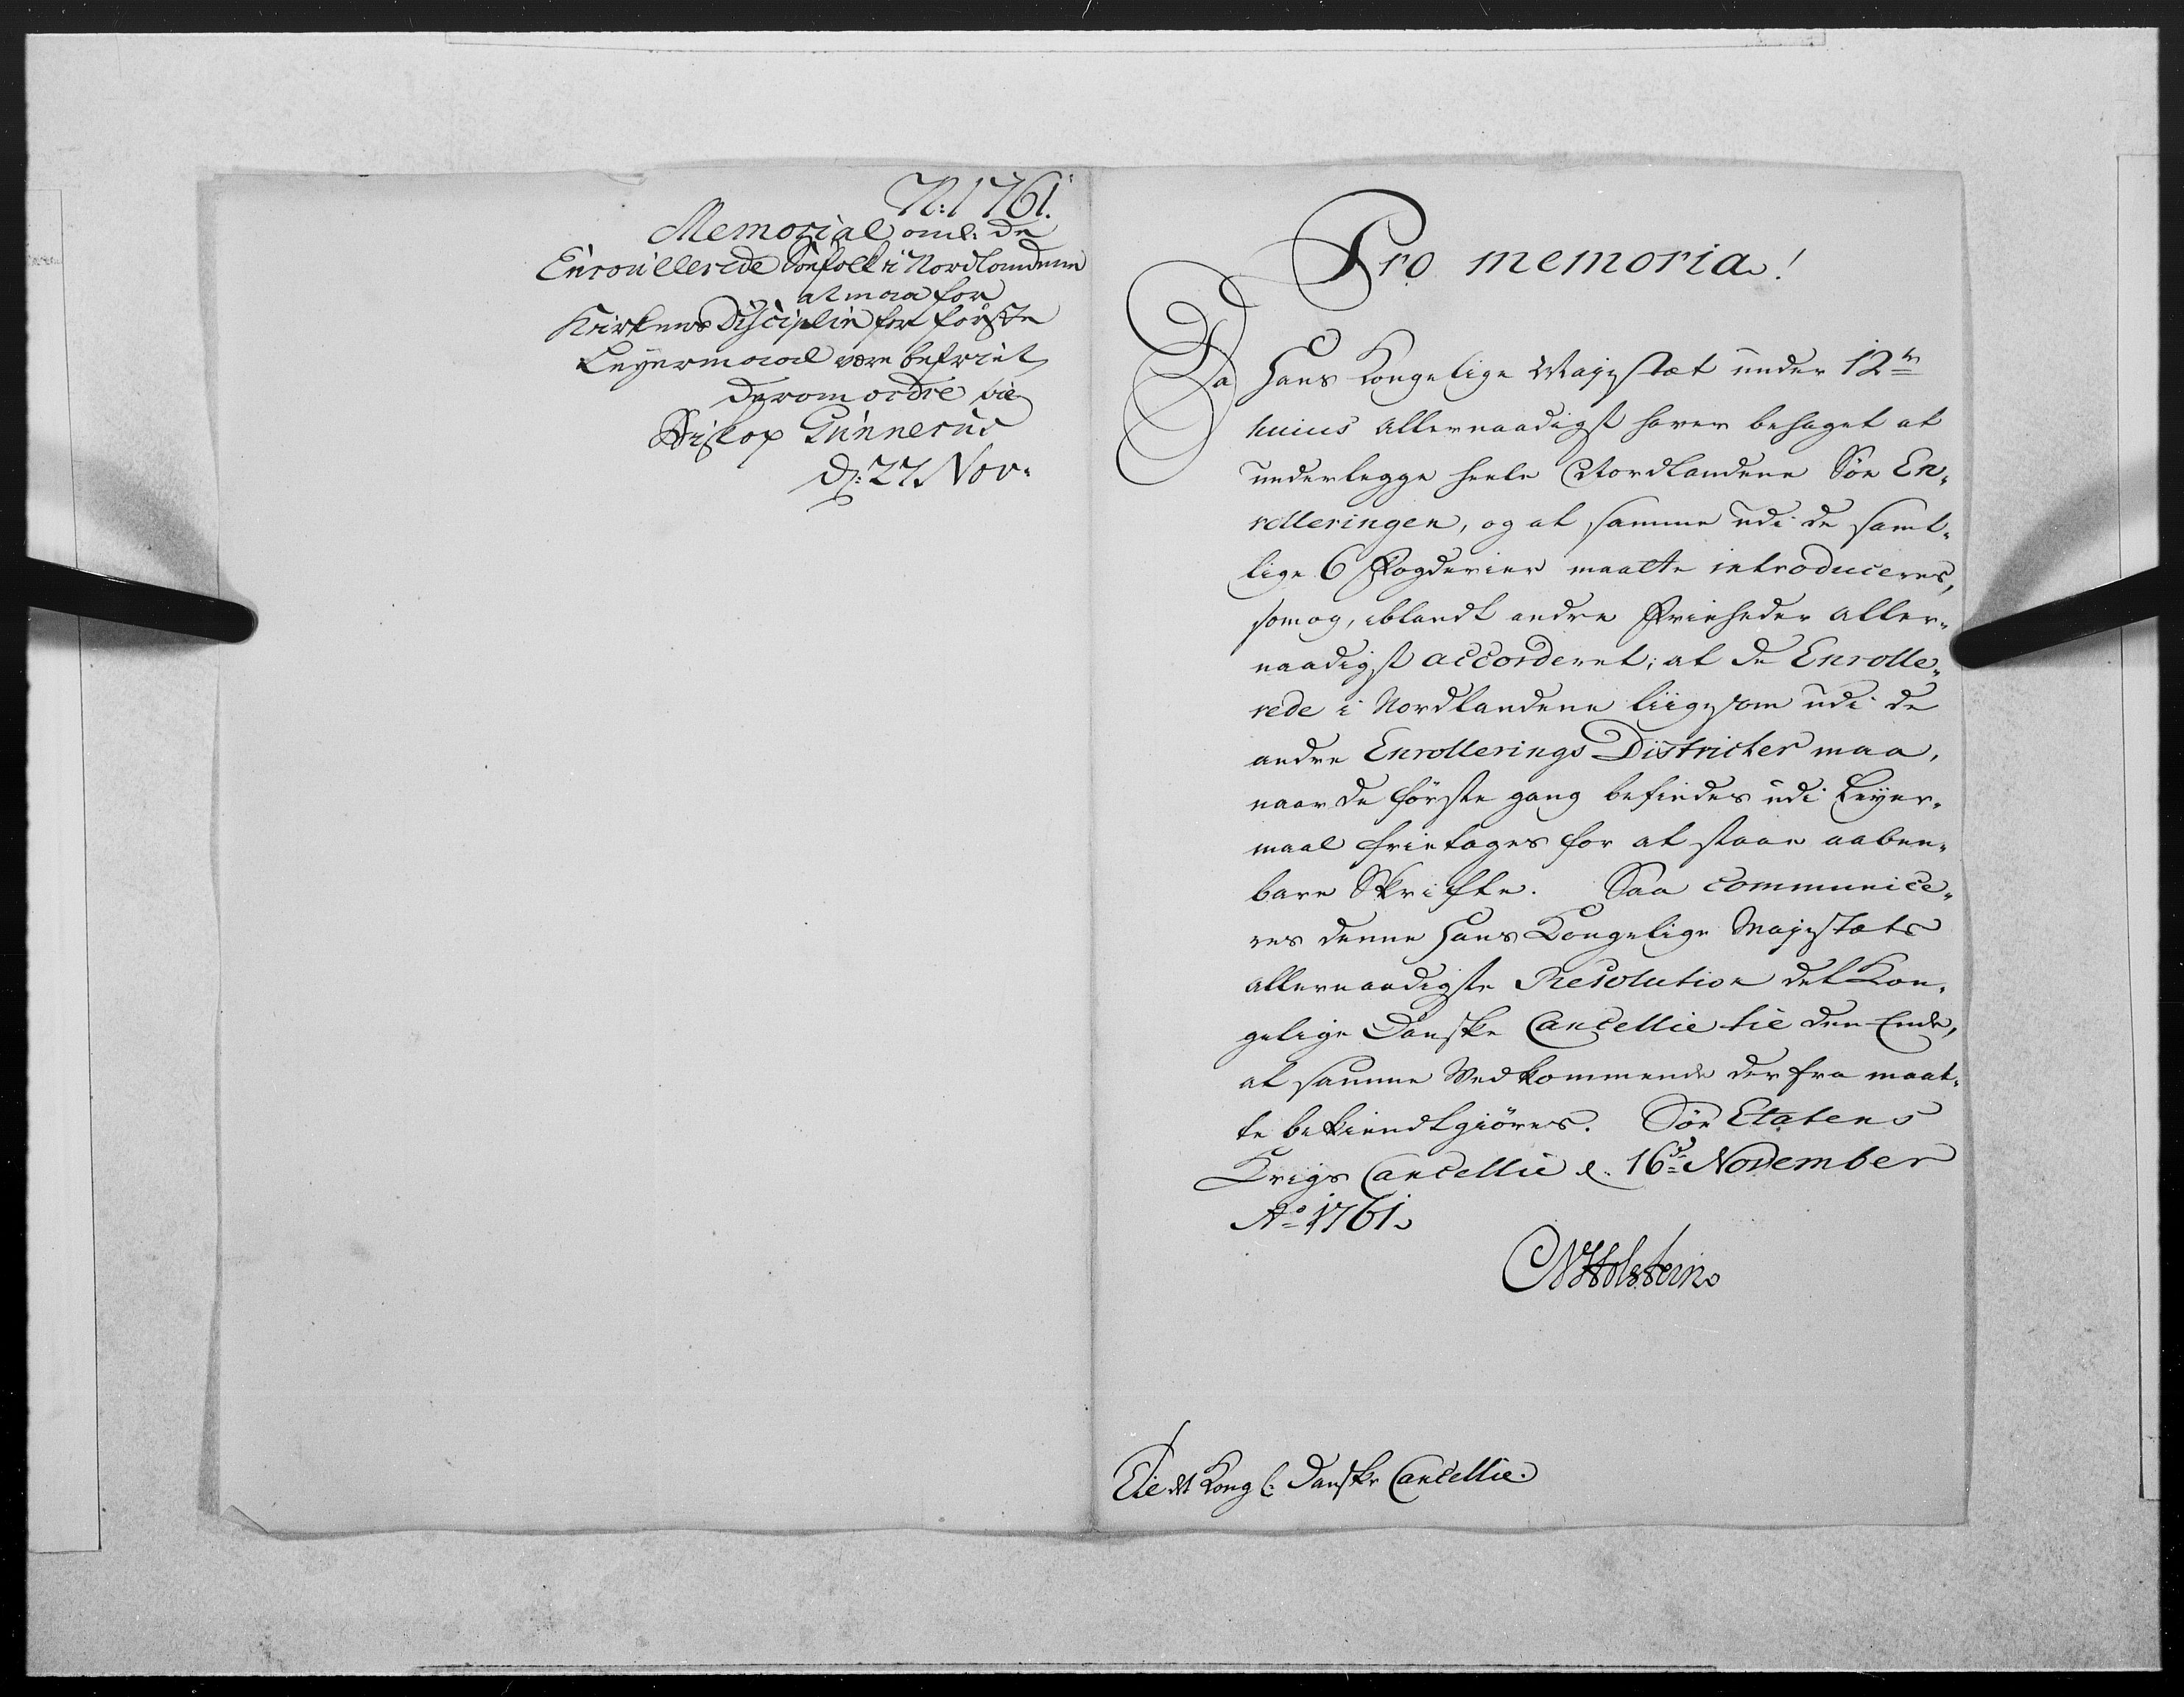 N: 1761.
Memorial om de
Enroullerede Söefolk i Nordlandene
at maa for
Kirkens Disciplin for förste
Leyermaal være befriet
derom ordre til
Biskop Gunnerus
d: 27 Nov.
Pro memoria!
Da Hans Kongelige Mayestæt under 12te
huius allernaadigst haver behaget at
underlegge heele Nordlandene Söe En-
rolleringen, og at samme udi de samt-
lige 6 Fogderier maatte introduceres,
som og, iblandt andre Friheder aller-
naadigst accorderet; at de Enrolle-
rede i Nordlandene liigesom udi de
andre Enrollerings Districter maa,
naar de förste gang befindes udi Leyer-
maal frietages for at staae aaben-
bare Skrifte. Saa communice-
res denne Hans Kongelige Mayestæts
allernaadigste Resolution det Kon-
gelige Danske Cancellie til den Ende,
at samme Vedkommende derfra maat-
te bekiendtgiöres. Söe Etatens
Krigs Cancellie d. 16de November
Ao 1761.
CNHolstein
Til det Kongl: Danske Cancellie.